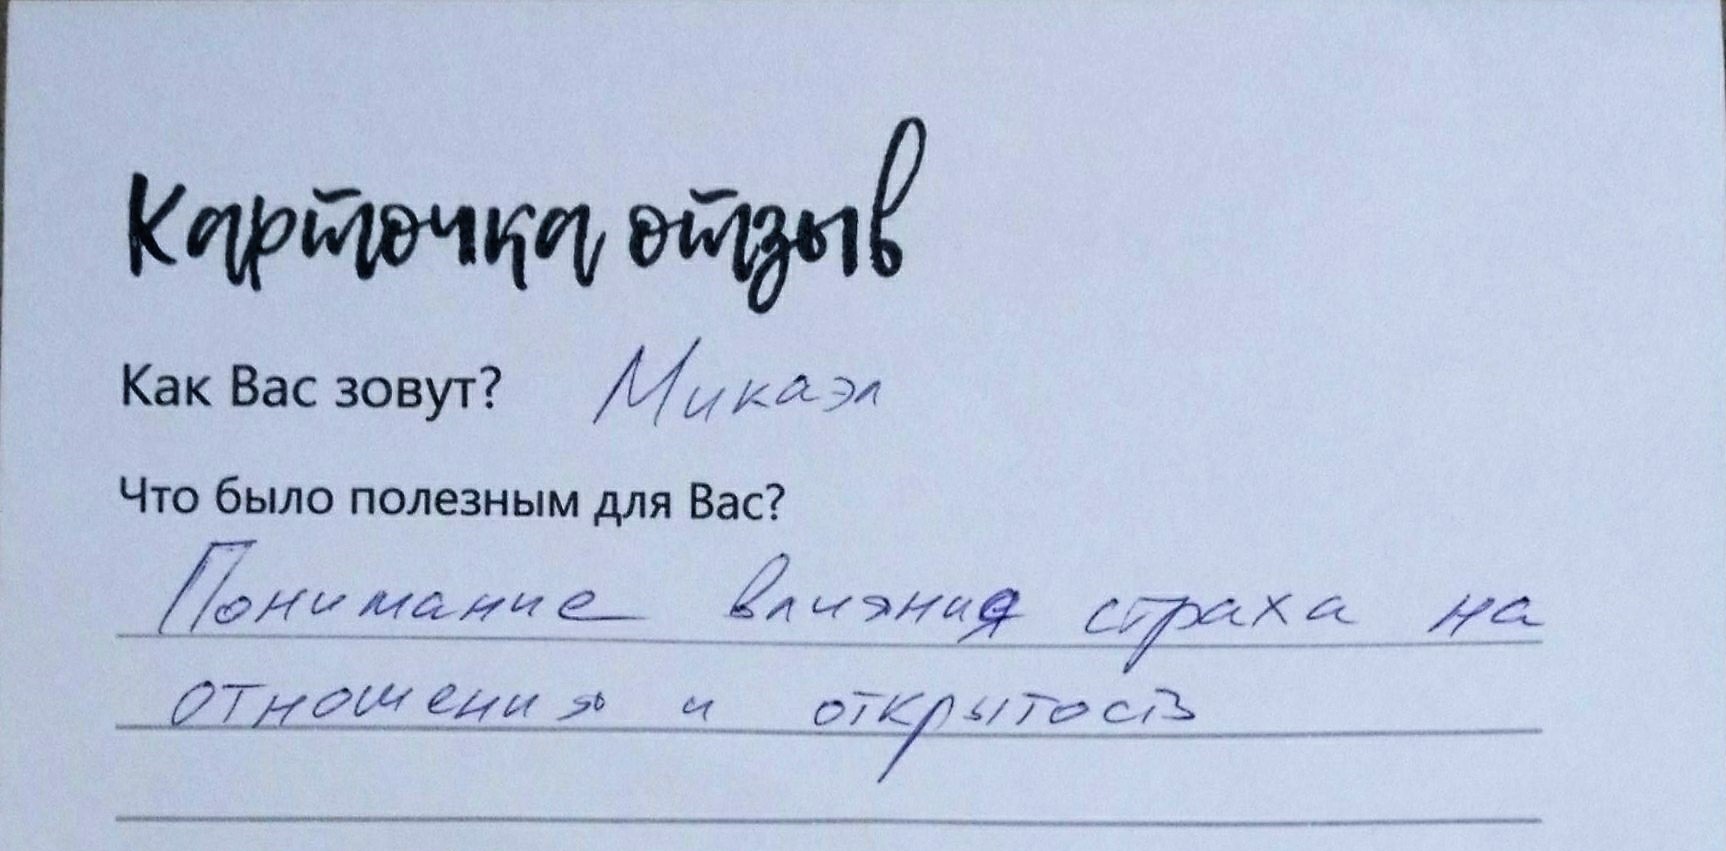 Карточка отзыв
Как Вас зовут? Микаэл
Что было полезным для Вас?
Понимание влияния страха на
отношения и открытость